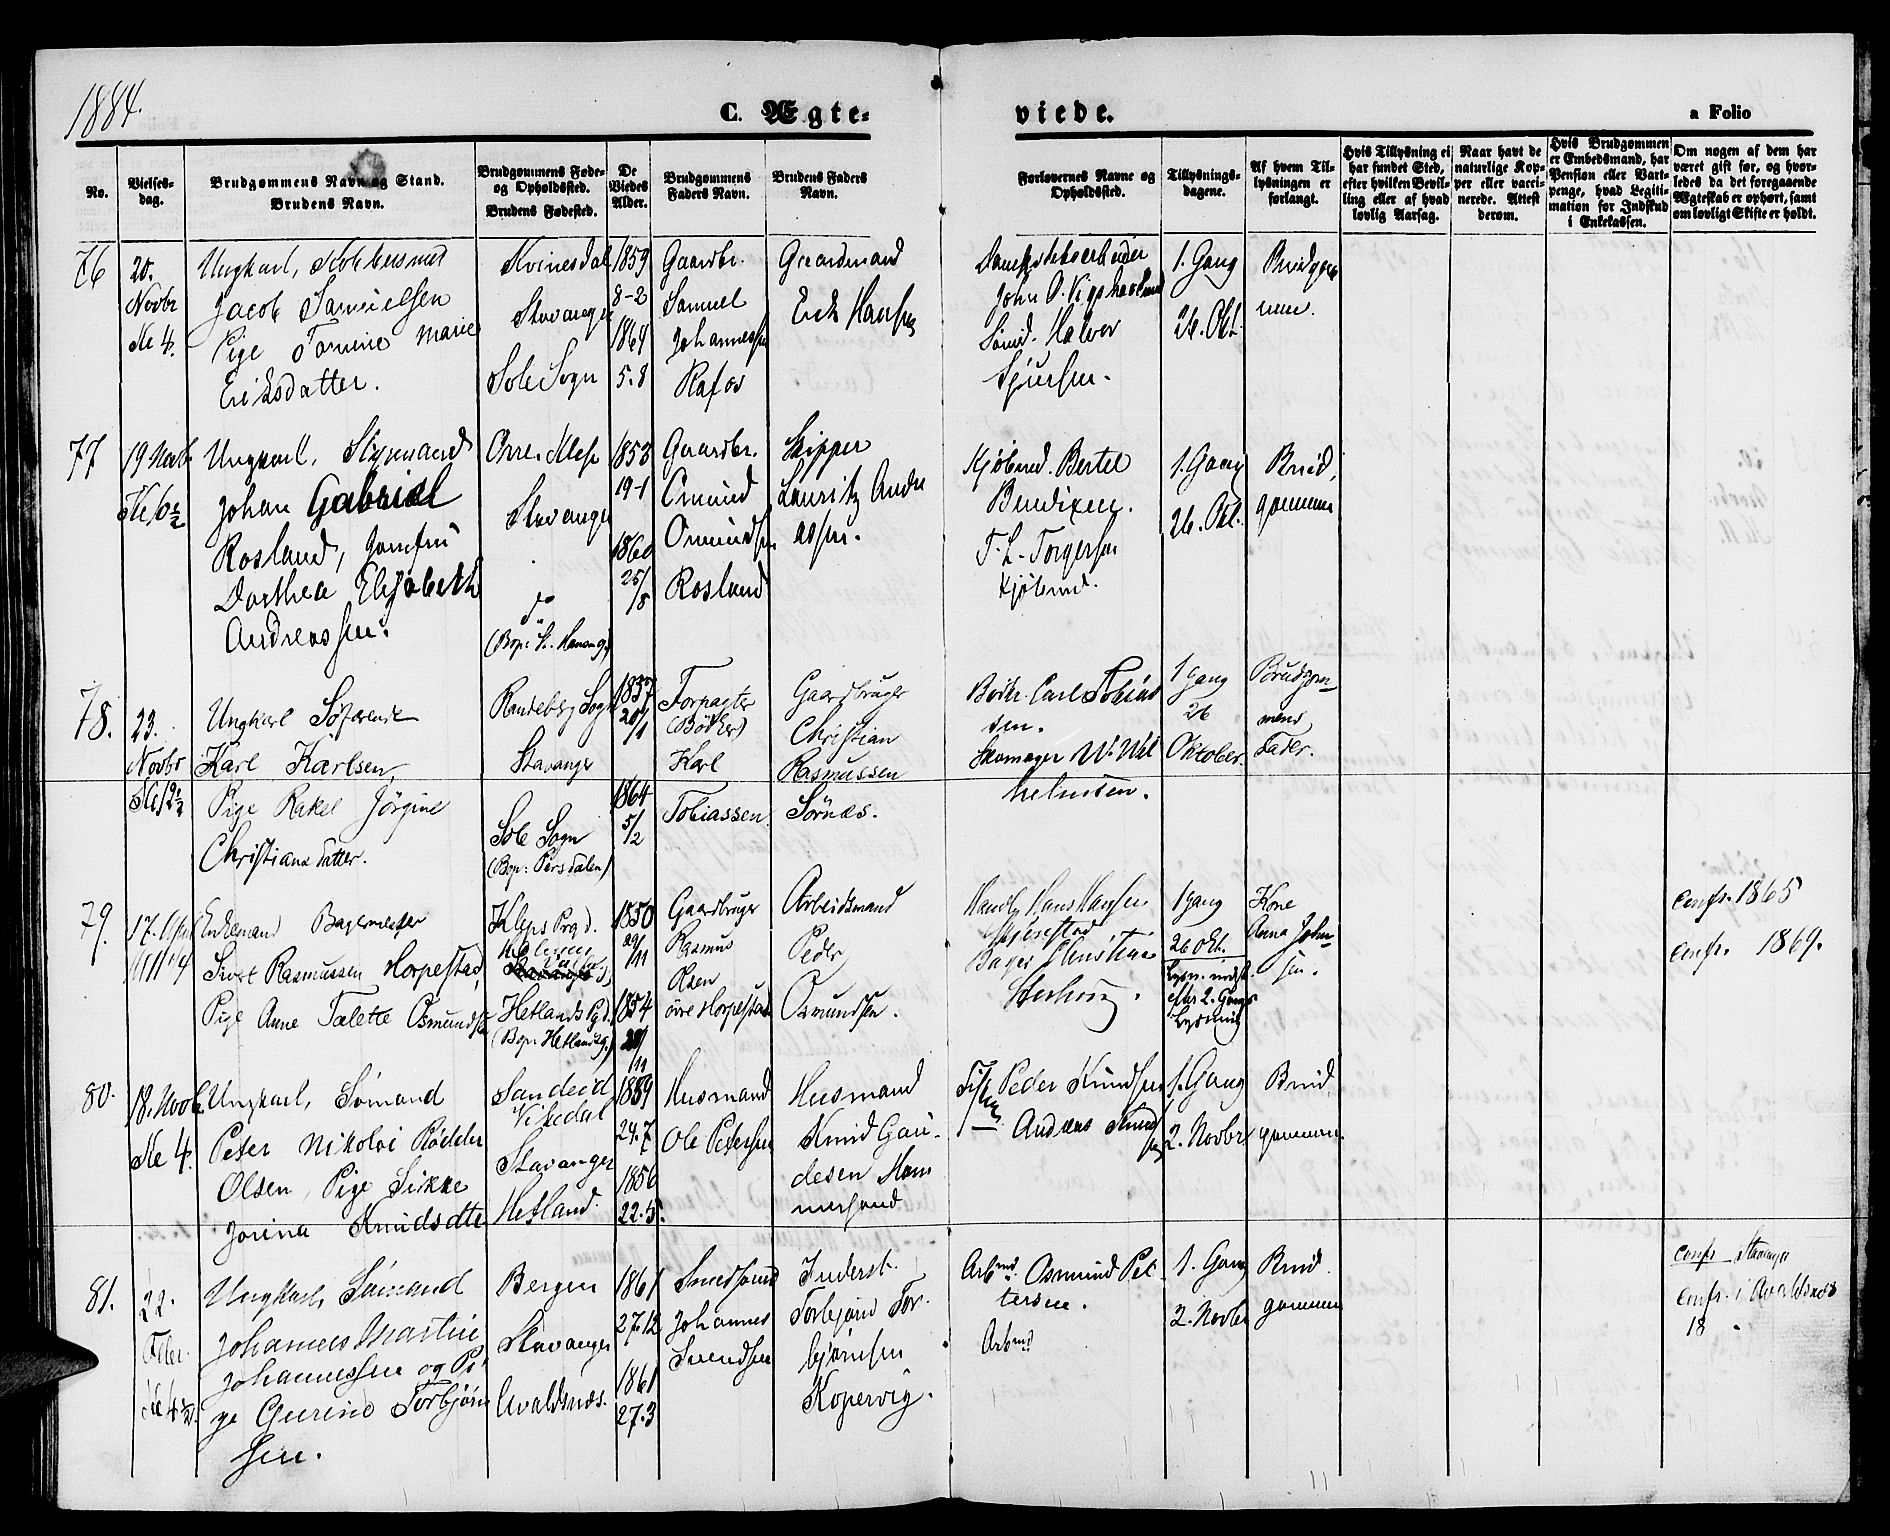 1884.
C. Ægte-
viede.
a Folio
No.
Vielses-
dag.
Brudgommens Navn og Stand.
Brudens Navn.
Brudgommens Føde-
og Opholdssted.
Brudens Fødested.
De
Viedes
Alder.
Brudgommens
Faders Navn.
Brudens Faders
Navn.
Forlovernes Navne og
Opholdssted.
Tillysnings-
dagene.
Af hvem Til-
lysningen er
forlangt.
Hvis Tillysning ei
har fundet Sted,
efter hvilken Bevil-
ling eller af hvad
lovlig Aarsag.
Naar havt de
naturlige Kop-
per eller vacci-
nerede. Attest
derom.
Hvis Brudgommen
er Embedsmand, har
Pension eller Vart-
penge, hvad Legiti-
mation for Indskud
i Enkekassen.
Om nogen af dem har
været gift før, og hvor-
ledes da det foregaaende
Ægteskab er ophørt, samt
om lovligt Skifte er holdt.
76
20.
Novbr
Kl 4.
Ungkarl,
Jacob Samuelsen
Pige Tomine Marie
Eriksdatter.
Kvinesdal
Stavanger
Sole Sogn
1859
8-2
1864
5.8
Gaardbr.
Samuel
Johannessen
Rafos
Gaardmand
Erik Hansen
John O.
Sømd. Halvor
Sjursen.
1. Gang
26. Okt.
Brudgom
men.
77
19 Novb
Kl 6½
Ungkarl, Styrmand
Johan Gabriel
Rosland, Jomfru
Dorthea Elisabeth
Andreassen.
Orre Klep
Stavanger
do
1853
19-1
1860
25/8
Gaardbr.
Omund
Omundsen
Rosland
Skipper
Lauritz Andre
assen.
Kjøbmd. Bertel
Bendixen.
T. L. Torgersen
Kjøbmd.
1. Gang
26. Okt.
Brud,
gommen
78.
23.
Novbr
Kl 12½
Ungkarl Søfarende
Karl Karlsen,
Pige Rakel Jørgine
Christiansdatter.
Randeberg Sogn
Stavanger
Sole Sogn
(Bop: Persdalen)
1857
20/1
1864
5/2
Forpagter
(Bödker)
Karl
Tobiassen.
Gaardbruger
Christian
Rasmussen
Sørnæs.
Bødkr. Carl Tobias
sen.
Skomager W. Wil
helmsen.
1 Gang
26
Oktober.
Brudgom-
mens
Fader.
79.
17.
Enkemand Bagermester
Sivert Rasmussen Horpestad,
Pige Anne Talette Osmundsen
Kleps Prgd.
Hetlands Pgd.
(Bop: Hetlandsg.)
1850
29/11
1854
28/11
Gaardbruger
Rasmus
Rsen
øvre Horpestad
Arbeidsmand
Peder
Osmundsen.
Handl. Hans Hansen
Bager Christian
1 Gang
26 Okt.
efter 2. Gangs
Lysning
Kone
Anna John-
sen.
conf. 1865
conf. 1869.
80.
18. Novb.
Kl 4.
Ungkarl, Sømand
Peter Nikolai Rödder
Olsen, Pige Sikke
Jorina Knudsdtr
Sandeid
Vikedal
Stavanger
Hetland.
1859
24.7
1856
22.5.
Husmand
Ole Petersen
Husmand
Knud Gau-
desen Ham
mersand
Peder Knudsen
Andreas Knud
sen
1. Gang
2. Novbr
Brud
gommen.
81.
22.
Febr.
Kl 4½.
Ungkarl, Sømand
Johannes Martin
Johannessen og Pi-
ge Gurine Torbjørn
sen.
Bergen
Stavanger
Avaldsnæs.
1861
27.12
1861
27.3
Johannes
Svendsen
Inderst.
Torbjørn Tor-
bjørnsen
Kopervig.
Arbmd. Osmund Pet-
tersen.
Arbmd
1. Gang
2. Novbr
Brud
gommen
conf. Stavanger
conf. i Avaldsnæs
18